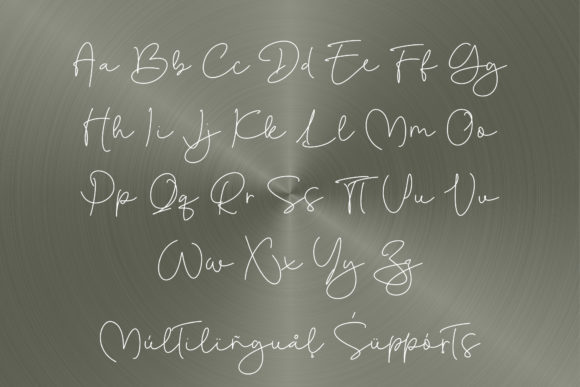 Aa Bb Cc Dd Ee Ff Gg
Hh Ii Jj Kk Ll Mm Oo
Pp Qq Rr Ss Tt Uu Vv
Ww Xx Yy Zz
Múltilïñguåļ Śüppórts